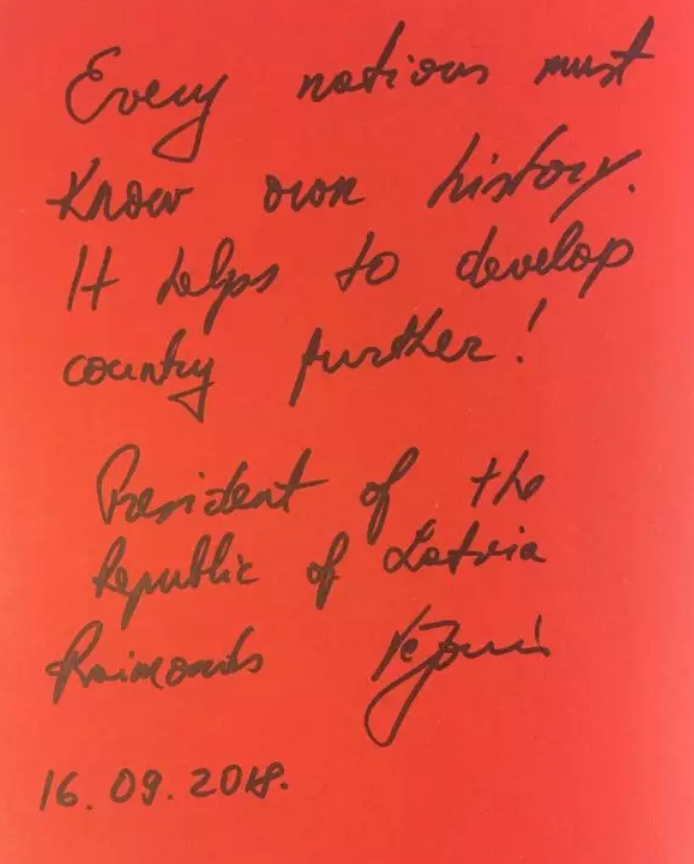 Every nations must
know own history.
It helps to develop
country further!
President of the
Republic of Latvia
Raimonds Vējonis
16.09.2018.